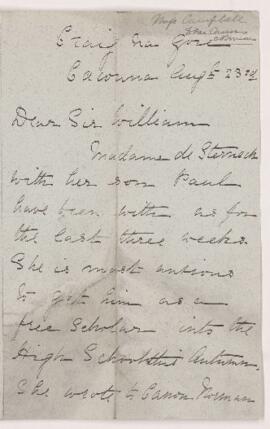 Miss Campbell
Craig na Gour
Cacouna Augt 23rd
Dear Sir William
Madame de Sterneck
with her son Paul
have been with us for
the last three weeks
She is most anxious
to get him as a
free scholar into the
High School this Autumn.
She wrote to Canon Norman